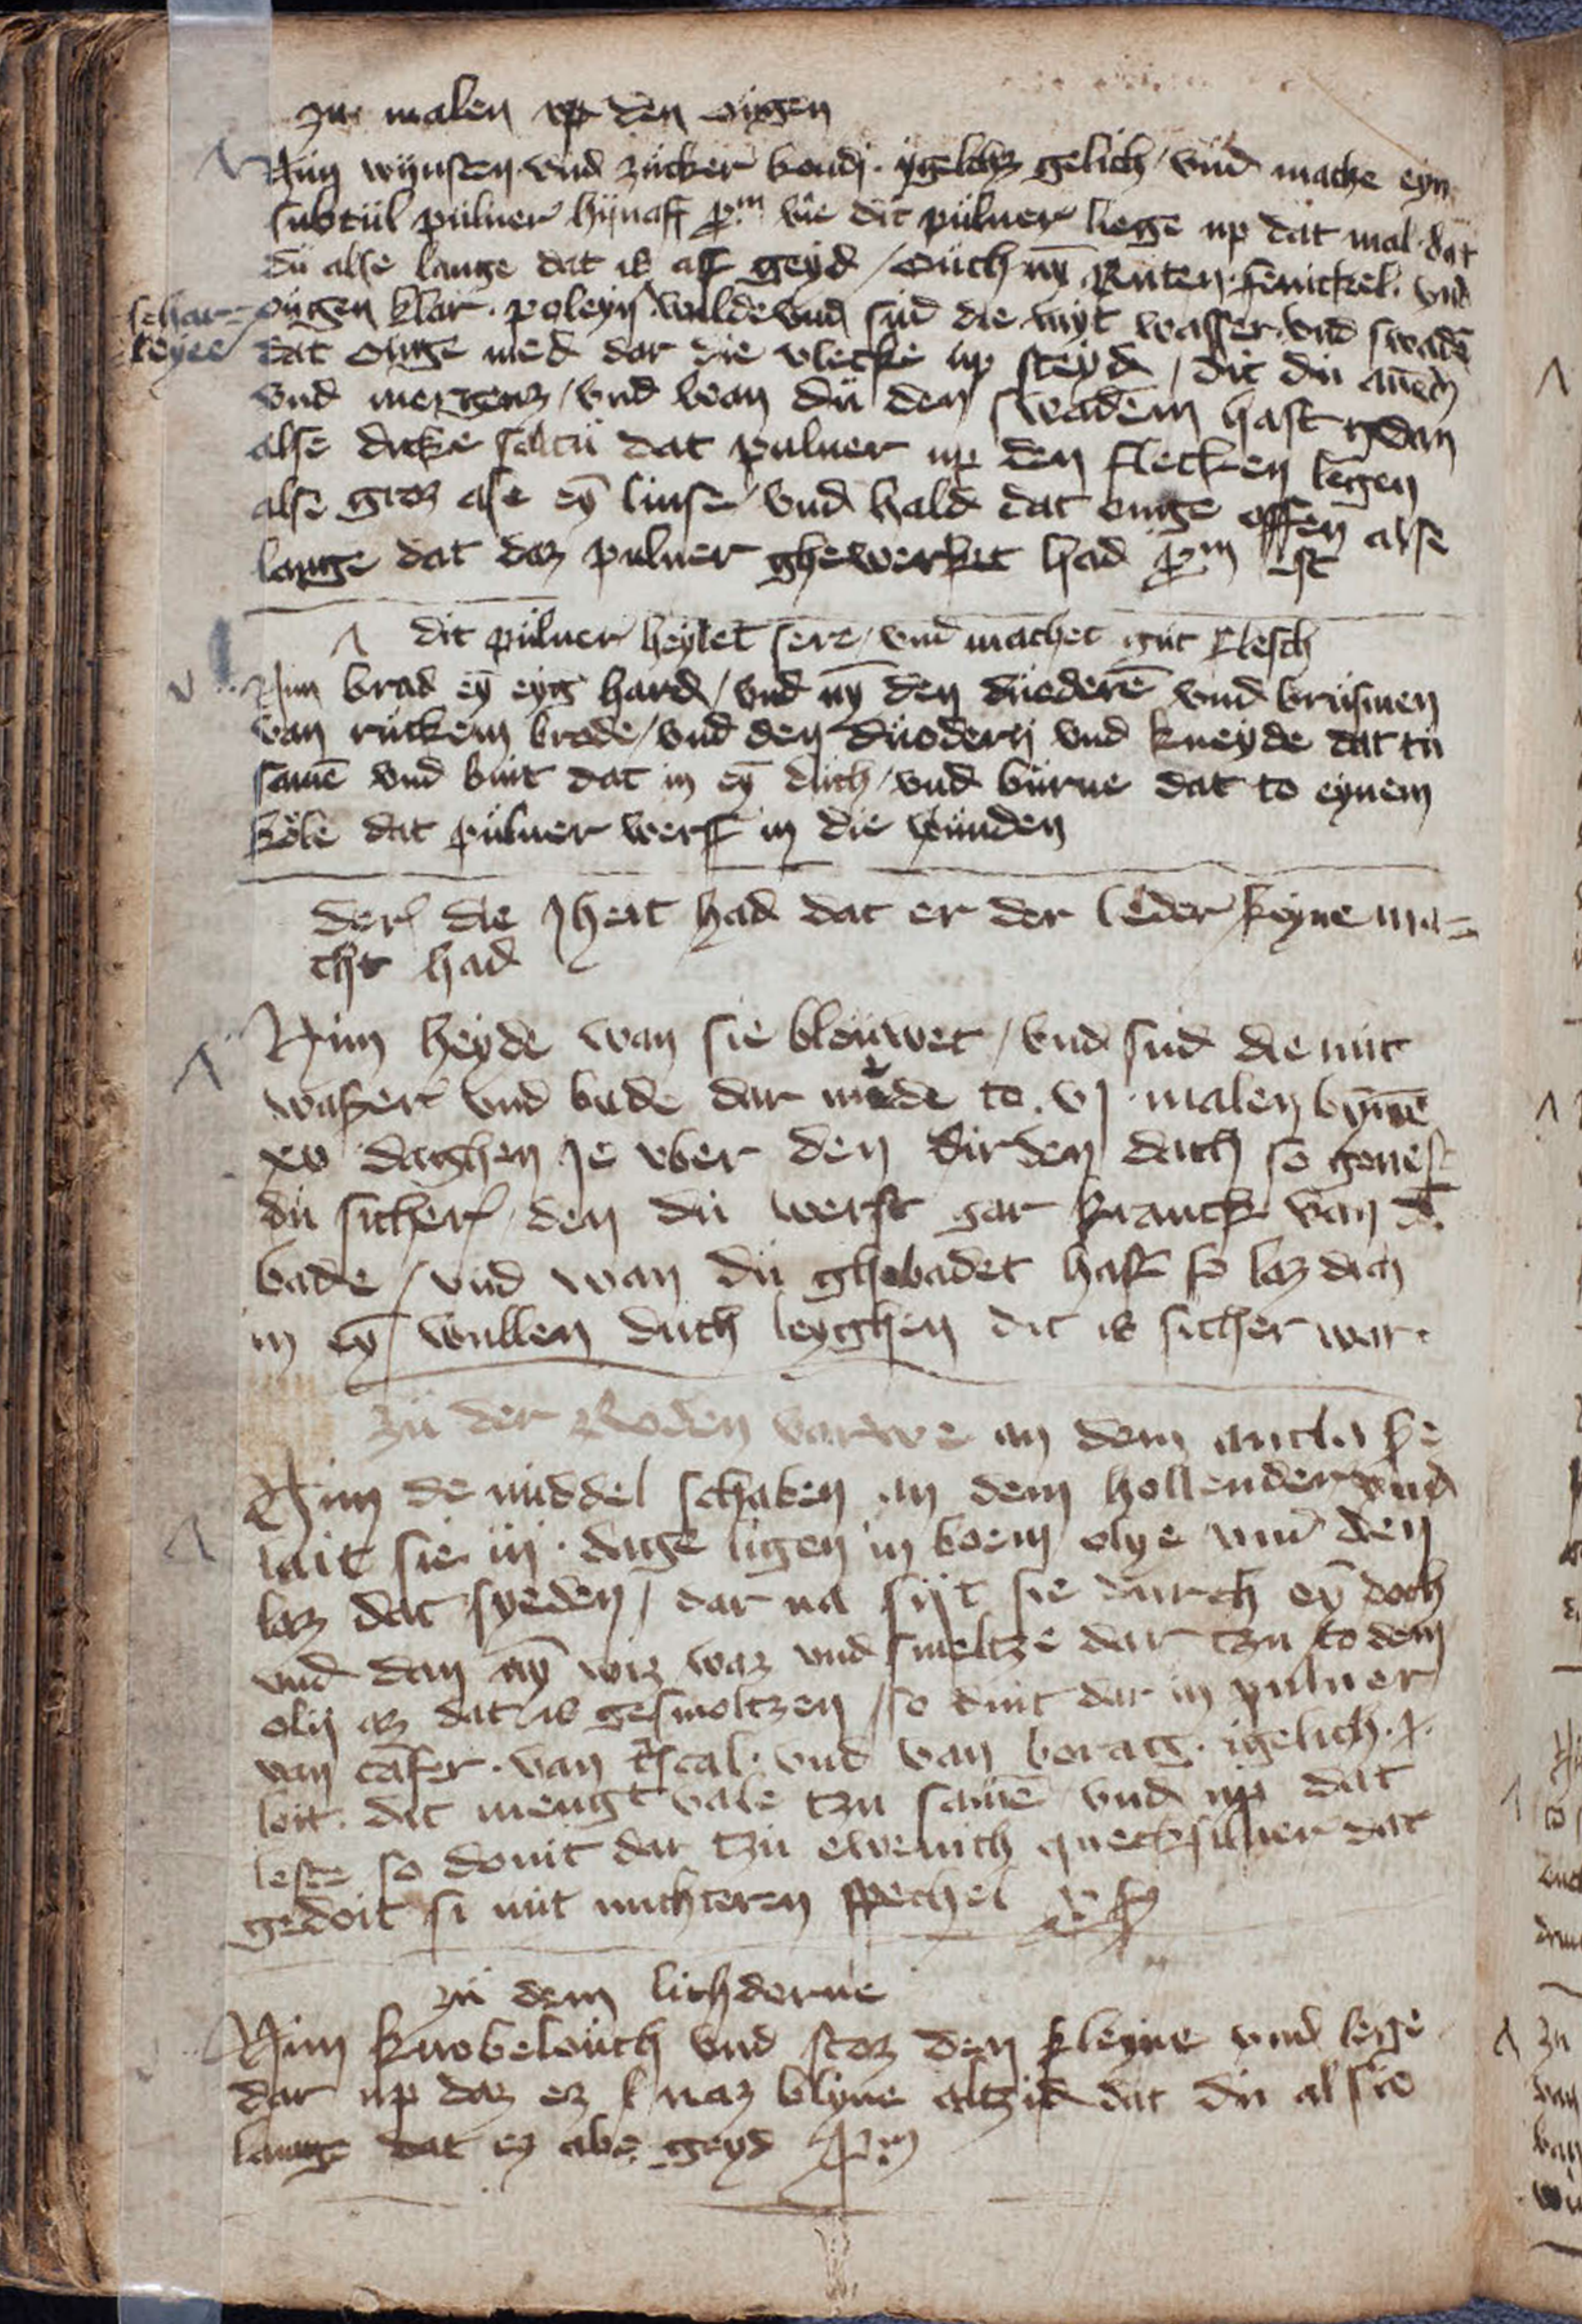 zu malen vp den oügen
Nim wÿnsten vnd zücker kandi ÿgelichz gelich vnd mache eyn
subtül pülner hÿnaff pm die dit pülner liege up dat mal dat
du alse lange dat is aff geyd / ouch nÿ Rüten fenickel vnd
schar= oügen klar poleyn wilde vnd süd die myt wasser vnd swadē
leyee dat ouge med dar die vlecke up steyd / dit dü auēd
vnd mergenz / vnd wan dü den swadem hast gdan
alse dicke saltü dat pulner up den flecken legen
alse groz ase eȳ linse vnd hald dat ouge offen alse
lange dat daz pulner ghewerket had pm ist
dit pülner heylet sere vnd machet güt flesch
Nim brad eȳ eyg hard / vnd nȳ den düederē vnd brüsmen
van rückem brode / vnd den düodern vnd kneyde dat tü
samē vnd bint dat in eȳ düch / vnd bürne dat to eynem
köle dat pülner werff in die wünden
der die Jheit had dat er der leder keyne ma=
cht had
Nim heyde wan sie blouwet / vnd süd die mit
waßer vnd bade dar mede to vj malen bynnē
xv daghen Je vber den dirden dach so genest
du sicher / den du werst gar kranck van dē
bade / vnd wan du ghebadet hast so laz dich
in eȳ wullen duch leyghen dit is sicher war
zü der Roden varwe an dem antlaße
Nim de middel schaken an dem hollender vnd
lait sie iij dage ligen in boem olye vnd den
laz dat syeden / dar na sijt sie durch eȳ doch
vnd dan nȳ wiz waz vnd smeltze dar tzu to dem
olij az dat is gesmoltzen / so duit dar in pulner
van cāfer van cscal vnd van boracg igelich
loit dit mengt vale tzu samē vnd up dat
leste so douit dar tzü ewenich quecksilner dat
gedoit si mit nuchteren spechel
zü dem lichderne
Nim knobelouch vnd stoz den kleyne vnd lege
dar up daz ez knaz blyne altzid dat du also
lange dat ez abe geyd pm